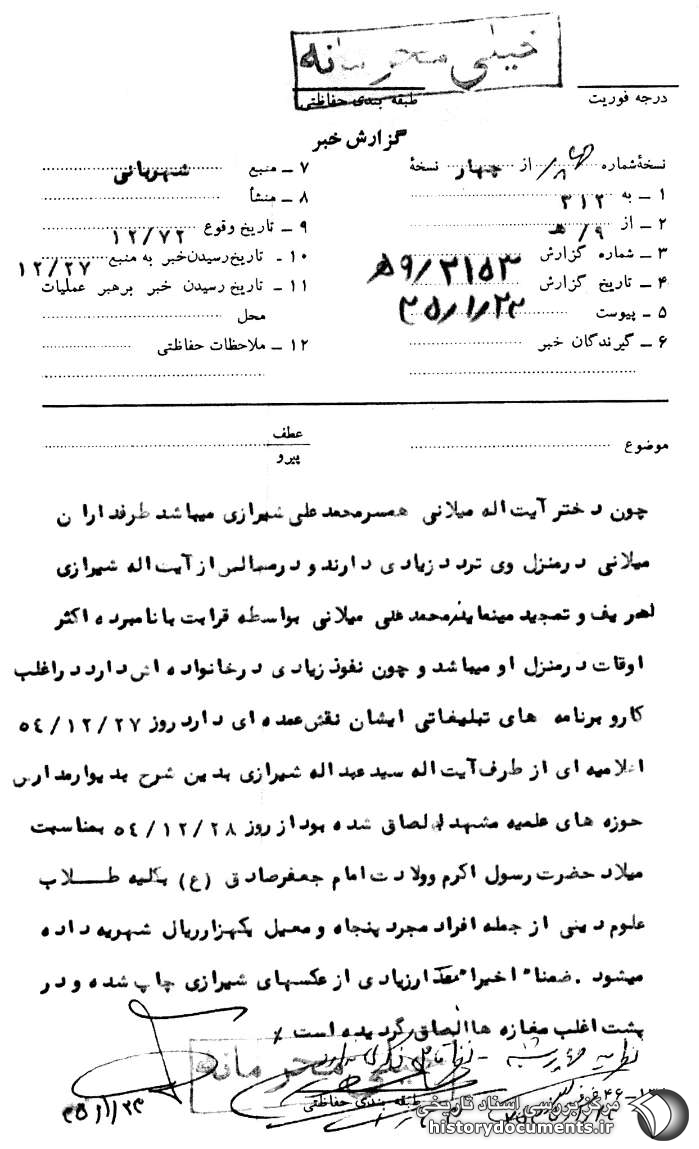 خیلی محرمانه
درجه فوریت
طبقه بندی حفاظتی
گزارش خبر
نسخهٔ شماره از چهار نسخهٔ
۱ ــ به ۳۱۲
۲ ــ از ۹/ﻫ
۳ ــ شماره گزارش ۹/۳۱۵۳ﻫ
۴ ــ تاریخ گزارش ۳۵/۱/۲۳
۵ ــ پیوست
۶ ــ گیرندگان خبر
۷ ــ منبع شهربانی
۸ ــ منشأ
۹ ــ تاریخ وقوع ۱۲/۷۲
۱۰ ــ تاریخ رسیدن خبر به منبع ۱۲/۲۷
۱۱ ــ تاریخ رسیدن خبر برهبر عملیات
محل
۱۲ ــ ملاحظات حفاظتی
موضوع
عطف
پیرو
چون دختر آیت اله میلانی همسر محمد علی شیرازی میباشد طرفداران
میلانی درمنزل وی تردد زیادی دارند و درمجالس از آیت اله شیرازی
تعریف و تمجید مینمایند محمد علی میلانی بواسطه قرابت با نامبرده اکثر
اوقات درمنزل او میباشد و چون نفوذ زیادی درخانواده اش دارد دراغلب
کارو برنامه های تبلیغاتی ایشان نقش عمده ای دارد روز ۵۴/۱۲/۲۷
اعلامیه ای از طرف آیت اله سید عبداله شیرازی بدین شرح بدیوار مدارس
حوزه های علمیه مشهد الصاق شده بود از روز ۵۴/۱۲/۲۸ بمناسبت
میلاد حضرت رسول اکرم وولادت امام جعفرصادق (ع) بکلیه طلاب
علوم دینی از جمله افراد مجرد پنجاه و معیل یکهزارریال شهریه داده
میشود . ضمنا" اخیرا" مقدار زیادی از عکسهای شیرازی چاپ شده و در
پشت اغلب مغازه ها الصاق گردیده است
نظریه
خیلی محرمانه
طبقه بندی حفاظتی
۳۵/۱/۲۳
مرکز بررسی اسناد تاریخی
historydocuments.ir